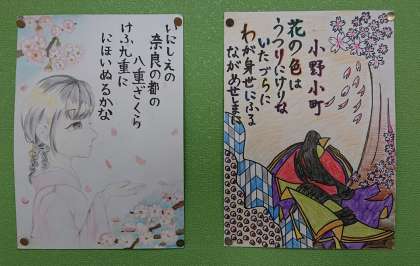 いにしえの
奈良の都の
八重ざくら
けふ九重に
にほいぬるかな
小野小町
花の色は
うつりにけりな
いたづらに
わが身世にふる
ながめせしまに